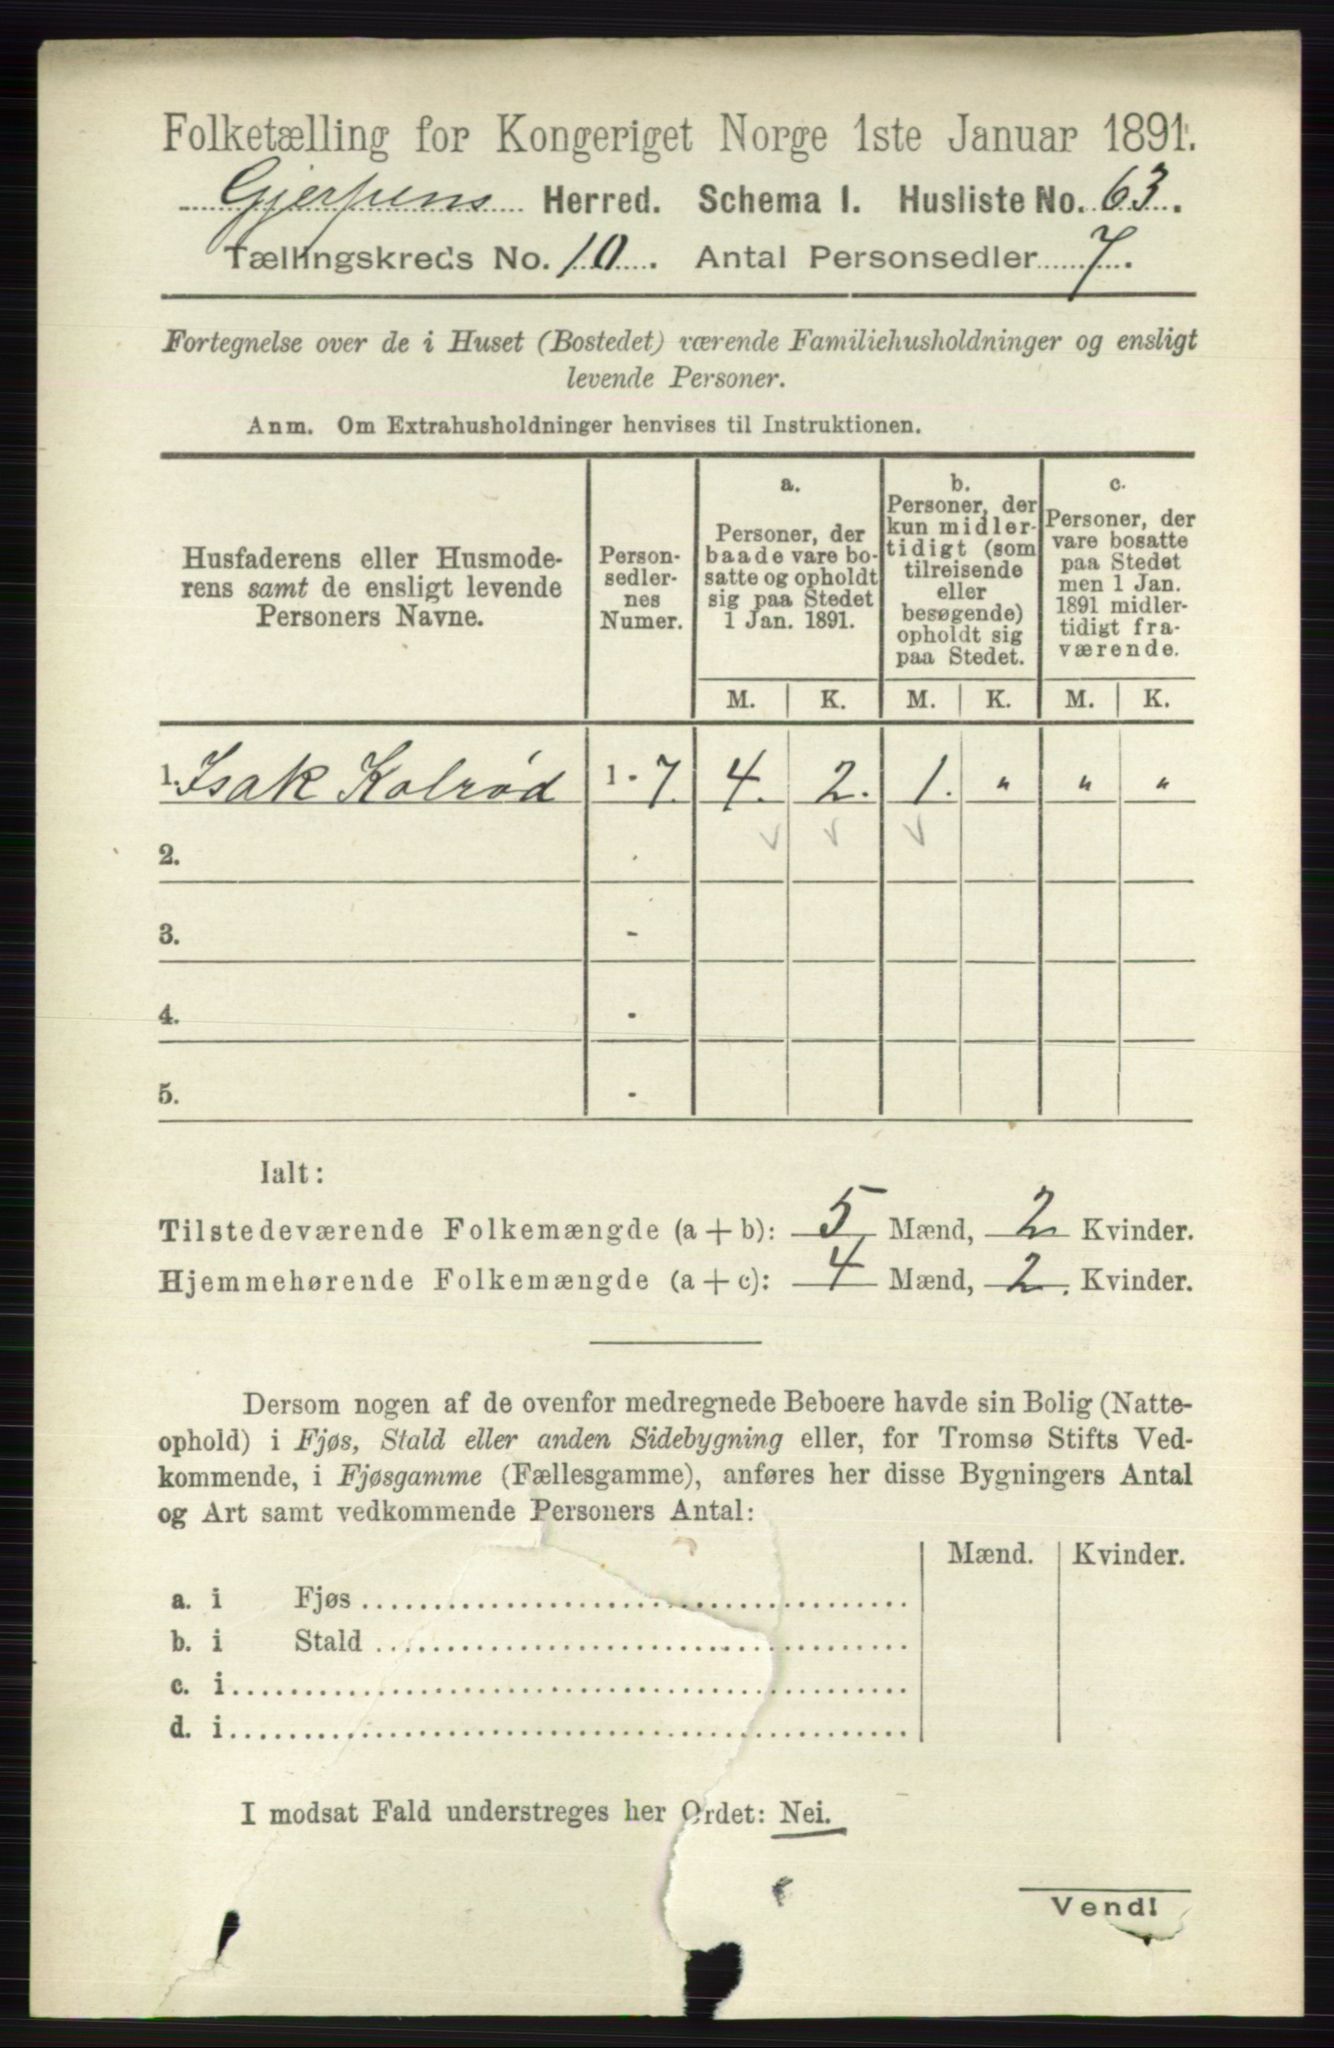 Folketælling for Kongeriget Norge 1ste Januar 1891.
Gjerpens Herred. Schema I. Husliste No. 63.
Tællingskreds No. 10. Antal Personsedler 7.
Fortegnelse over de i Huset (Bostedet) værende Familiehusholdninger og ensligt
levende Personer.
Anm. Om Extrahusholdninger henvises til Instruktionen.
Husfaderens eller Husmode-
rens samt de ensligt levende
Personers Navne.
Person-
sedler-
nes
Numer.
a.
Personer, der
baade vare bo-
satte og opholdt
sig paa Stedet
1 Jan. 1891.
b.
Personer, der
kun midler-
tidigt (som
tilreisende
eller
besøgende)
opholdt sig
paa Stedet.
c.
Personer, der
vare bosatte
paa Stedet
men 1 Jan.
1891 midler-
tidigt fra-
værende.
M. K. M. K. M. K.
1. Isak Kolrød 1 - 7. 4. 2. 1. " " "
2.
3. -
4. -
5. -
Ialt:
Tilstedeværende Folkemængde (a + b): 5 Mænd, 2 Kvinder.
Hjemmehørende Folkemængde (a + c): 4 Mænd, 2. Kvinder.
Dersom nogen af de ovenfor medregnede Beboere havde sin Bolig (Natte-
ophold) i Fjøs, Stald eller anden Sidebygning eller, for Tromsø Stifts Ved-
kommende, i Fjøsgamme (Fællesgamme), anføres her disse Bygningers Antal
og Art samt vedkommende Personers Antal:
Mænd. Kvinder.
a. i Fjøs
b. i Stald
c. i
d. i
I modsat Fald understreges her Ordet: Nei.
Vend!